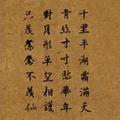 十里平湖霜滿天
青絲寸寸愁華年
對月形單望相護
只羨鴛鴦不羨仙